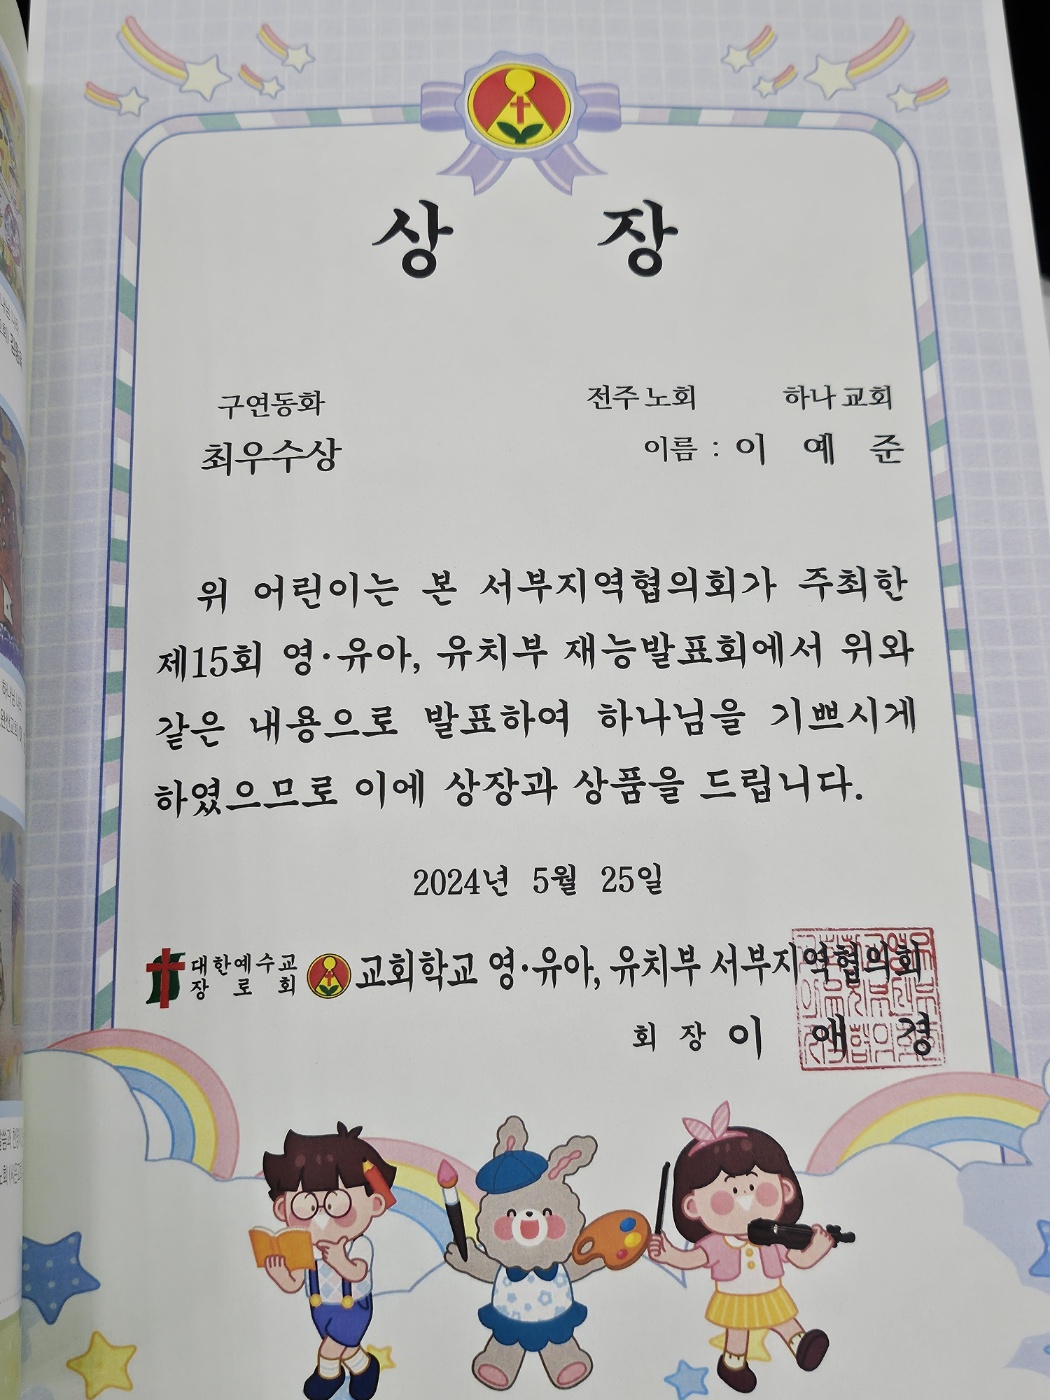 상 장
구연동화
최우수상
전주노회 하나교회
이름 : 이 예 준
위 어린이는 본 서부지역협의회가 주최한
제15회 영·유아, 유치부 재능발표회에서 위와
같은 내용으로 발표하여 하나님을 기쁘시게
하였으므로 이에 상장과 상품을 드립니다.
2024년 5월 25일
대한예수교
장로회
교회학교 영·유아, 유치부 서부지역협의회
회 장 이 애 경